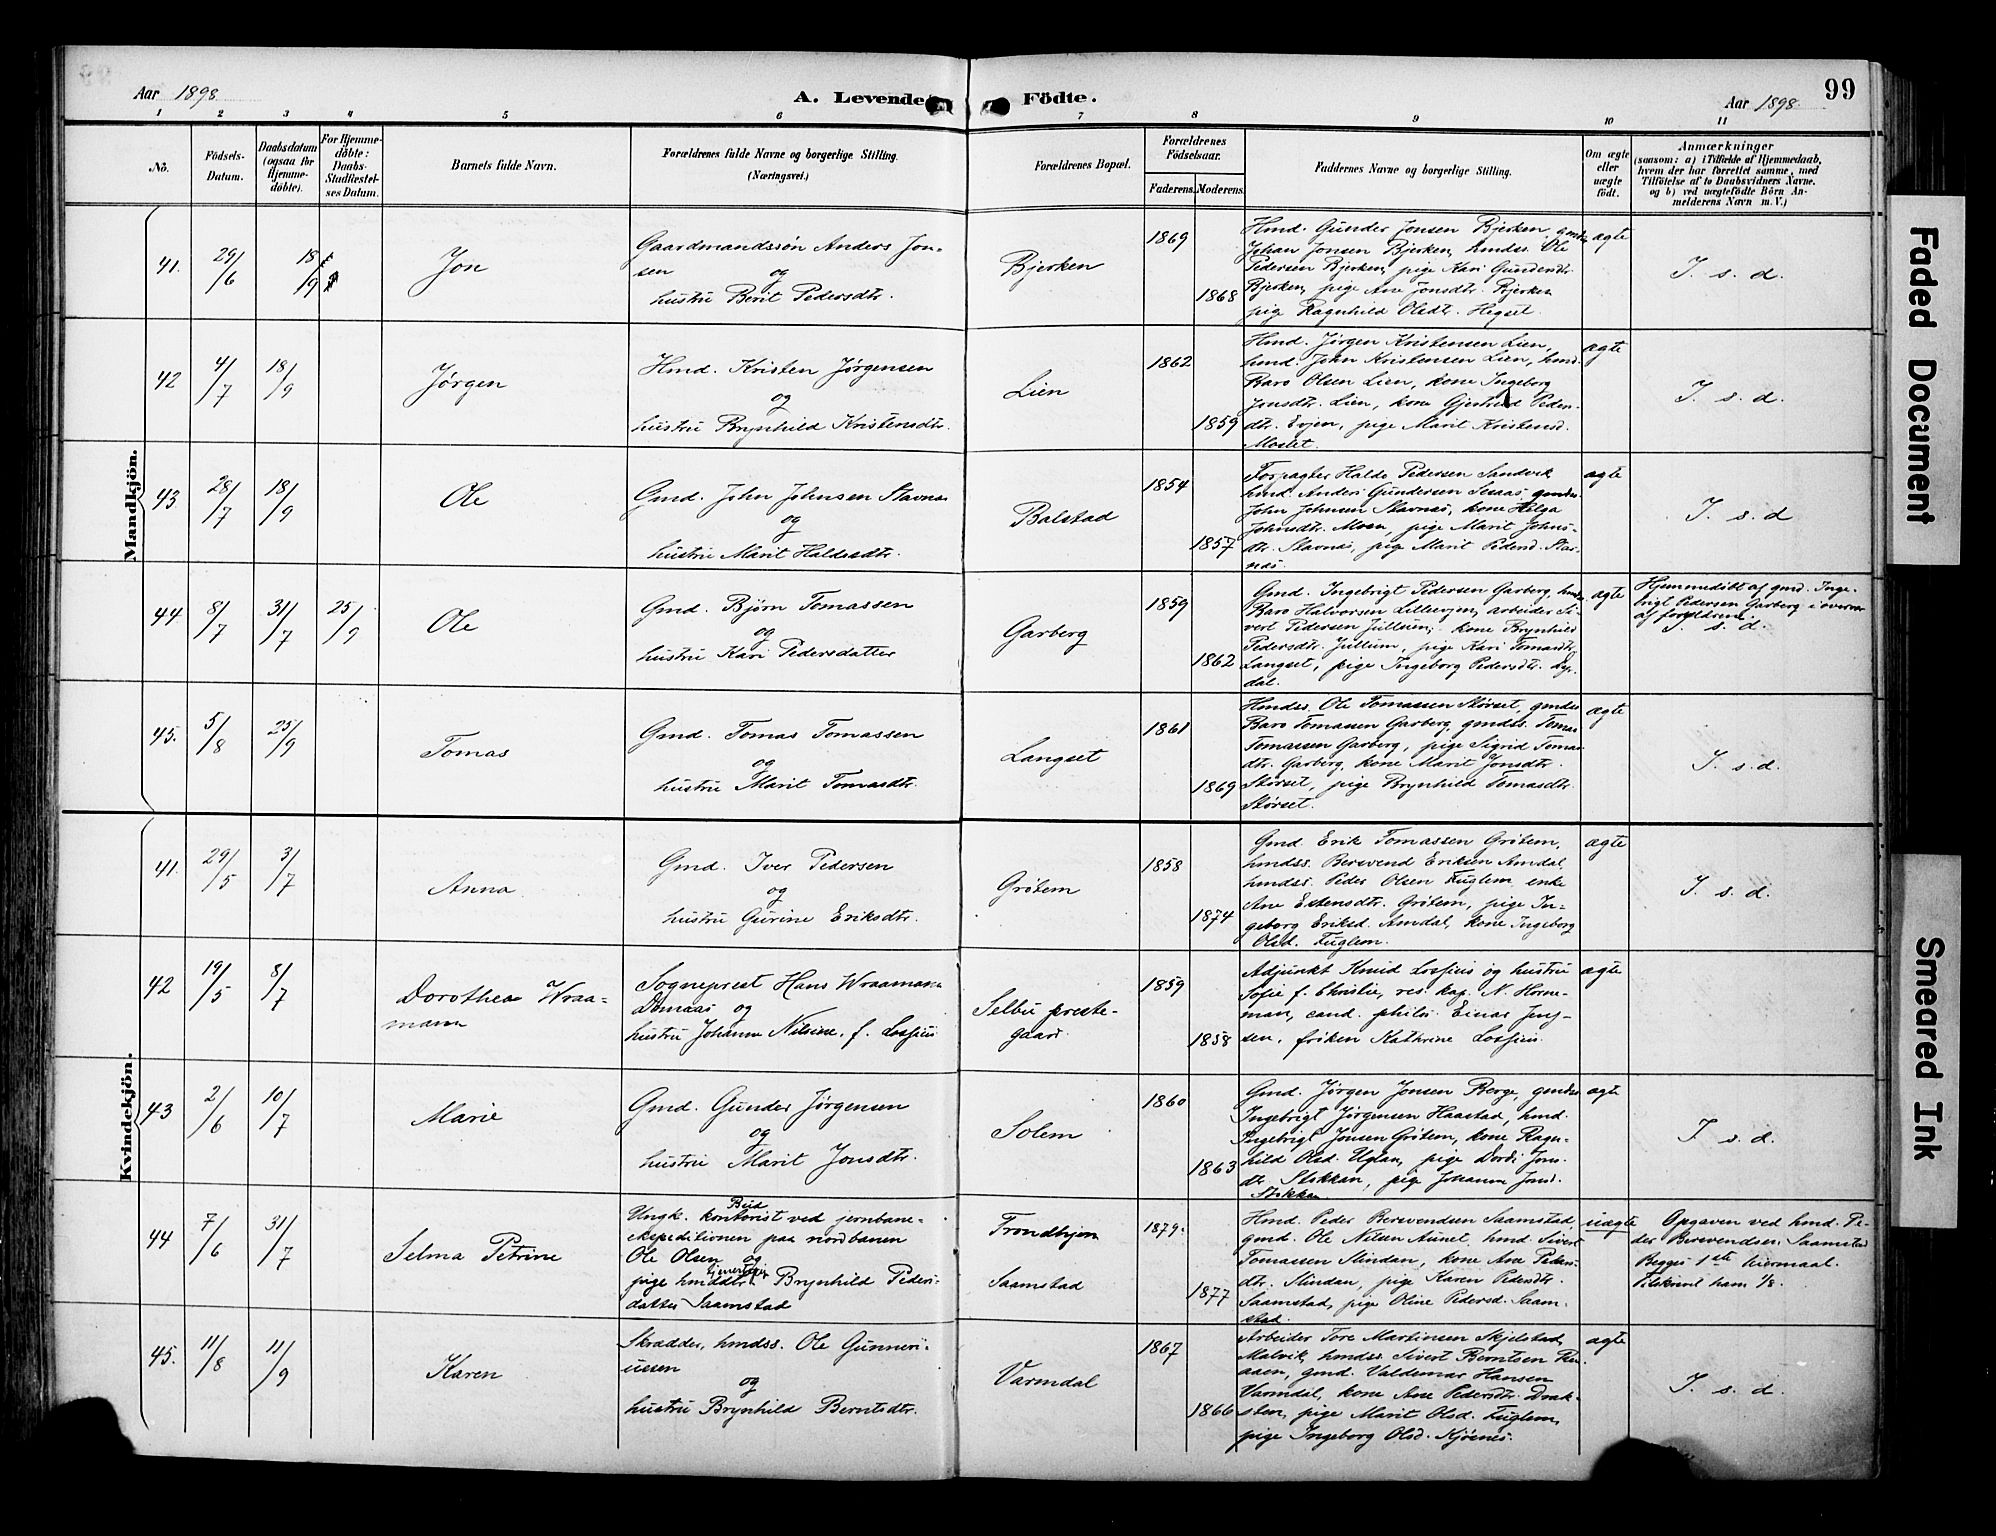 99
Aar 1898.
A. Levende Födte.
Aar 1898.
1 2 3 4 5 6 7 8 9 10 11
No.
Födsels-Datum.
Daabsdatum (ogsaa for Hjemmedöbte).
For Hjemmedöbte: Daabs-Stadfæstelses Datum.
Barnets fulde Navn.
Forældrenes fulde Navne og borgerlige Stilling.
(Næringsvei.)
Forældrenes Bopæl.
Forældrenes Födselsaar.
Faderens. Moderens.
Faddernes Navne og borgerlige Stilling.
Om ægte eller uægte födt.
Anmærkninger
(saasom: a) i Tilfælde af Hjemmedaab, hvem der har forrettet samme, med Tilföielse af to Daabsvidners Navne, og b) ved uægtefödte Börn Anmelderens Navn m. V.)
Mandkjön.
41. 29/6 18/9
Jon
Gaardmandssön Anders Jon-
sen
og
hustru Berit Pedersdtr.
Bjerken
1869
1868
Hmd. Gunder Jonsen Bjerken, gmds.
Johan Jonsen Bjerken, hmdss. Ole
Pedersen Bjerken, pige Kari Gundersdtr.
Bjerken, pige Ane Jonsdtr. Bjerken
pige Ragnhild Olsdtr. Hegset.
ægte
I. s. d.
42 4/7 18/9
Jørgen
Hmd. Kristen Jørgensen
og
hustru Brynhild Kristensdtr.
Lien
1862
1859
Hmd. Jørgen Kristensen Lien,
hmd. John Kristensen Lien, hmd.
Baro Olsen Lien, kone Ingeborg
Jonsdtr. Lien, kone Gjertrud Peders-
dtr. Evjen, pige Marit Kristensd.
Moslet.
ægte
I. s. d.
43 28/7 18/9
Ole
Gmd. John Johnsen Stavnæs
og
hustru Marit Haldosdtr.
Balstad
1854
1857
Forpagter Halde Pedersen Sandvik
hmd. Anders Gundersen Sesaas, gmds.
John Johnsen Stavnæs, kone Helga
Johnsdtr. Moen, pige Marit Johns-
dtr. Stavnæs, pige Marit Pedersd. Stav-
næs.
ægte
I. s. d
44 8/7 31/7 25/9
Ole
Gmd. Björn Tomassen
og
hustru Kari Pedersdatter
Garberg
1859
1862
Gmd. Ingebrigt Pedersen Garberg, hmds.
Baro Halvorsen Lilleevjen, arbeider Si-
vert Pedersen Jullum, kone Brynhild
Pedersdtr. Jullum, pige Kari Tomasdtr.
Langset, pige Ingeborg Pedersdtr. Dyr-
dal.
ægte
Hjemmedöbt af gmd. Inge-
brigt Pedersen Garberg i overvær
af forældrene
I. s. d.
45. 5/8 25/9
Tomas
Gmd. Tomas Tomassen
og
hustru Marit Tomasdtr.
Langset
1861
1869
Hmdss. Ole Tomassen Størset, gmds.
Baro Tomassen Garberg, gmdss. Tomas
Tomassen Garberg, pige Sigrid Tomas-
dtr. Garberg, kone Marit Jonsdtr.
Størset, pige Brynhild Tomasdtr.
Størset.
ægte
I. s. d.
Kvindekjön.
41. 29/5 3/7
Anna
Gmd. Iver Pedersen
og
hustru Gurine Eriksdtr.
Grötem
1858
1874
Gmd. Erik Tomassen Grötem,
hmdss. Berevend Eriksen Amdal
hmdss. Peder Olsen Fuglem, enke
Ane Estensdtr. Grötem, pige In-
geborg Eriksd. Amdal, kone Ingeborg
Olsd. Fuglem.
ægte
I. s. d.
42 19/5 8/7
Dorothea Wraa-
mann
Sogneprest Hans Wraamann
Domaas og
hustru Johanne Nilsine, f. Lossius
Selbu preste-
gaard.
1859
1858
Adjunkt Knud Lossius og hustru
Sofie f. Christie, res. kap. N. Horne-
man, cand. philos. Einar Jeng-
sen, fröken Kathrine Lossius.
ægte
43 2/6 10/7
Marie
Gmd. Gunder Jørgensen
og
hustru Marit Jonsdtr.
Solem
1860
1863
Gmd. Jørgen Jonsen Berge, gmds.
Ingebrigt Jørgensen Haastad, hmd.
Ingebrigt Jonsen Grötem, kone Ragn-
hild Olsd. Uglan, pige Dordi Jons-
dtr. Stokkan, pige Johanna Jonsd.
Stokkan
ægte
I. s. d.
44 7/6 31/7
Selma Petrine
Ungk. kontorist ved jernbane-
ekspeditionen paa nordbanen
Ole Olsen og
pige hmddtr. Brynhild Peders-
datter Saamstad
Trondhjem
Saamstad
1879.
1877
Hmd. Peder Berevendsen Saamstad,
gmd. Ole Nilsen Aunet, hmd. Sivert
Tomassen Slindan, kone Ane Peders-
dtr. Slindan, pige Karen Pedersdtr.
Saamstad, pige Oline Pedersd. Saam-
stad.
uægte
Opgaven ved hmd. Pe-
der Berevendsen Saamstad
Begges 1ste leiermaal.
Tilskrevet ham 1/8.
45. 11/8 11/9
Karen
Skrædder, hmdss. Ole Gunneri-
ussen
og
hustru Brynhild Berntsdtr.
Varmdal
1867
1866
Arbeider Tore Martinsen Skjelstad,
Malvik, hmdss. Sivert Berntsen Ra-
aaen, gmd. Valdemar Hansen
Varmdal, kone Ane Pedersdtr. Drak-
sten, pige Marit Olsd. Fuglem,
pige Ingeborg Olsd. Kjösnes.
ægte
I. s. d.
Faded Document
Smeared Ink